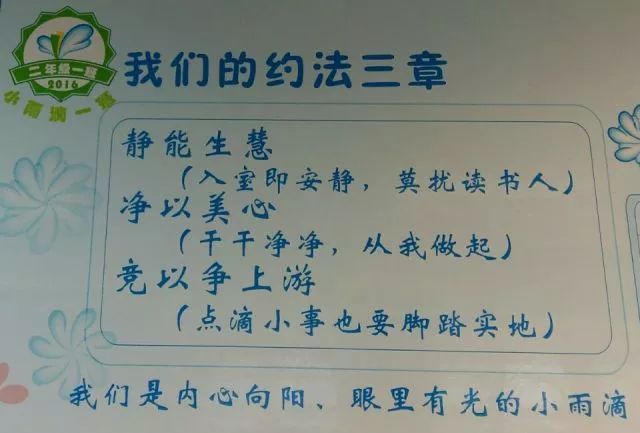 我们的约法三章
二年级一班
2016
小雨滴一班
静能生慧
（入室即安静，莫扰读书人）
净以美心
（干干净净，从我做起）
竞以争上游
（点滴小事也要脚踏实地）
我们是内心向阳、眼里有光的小雨滴